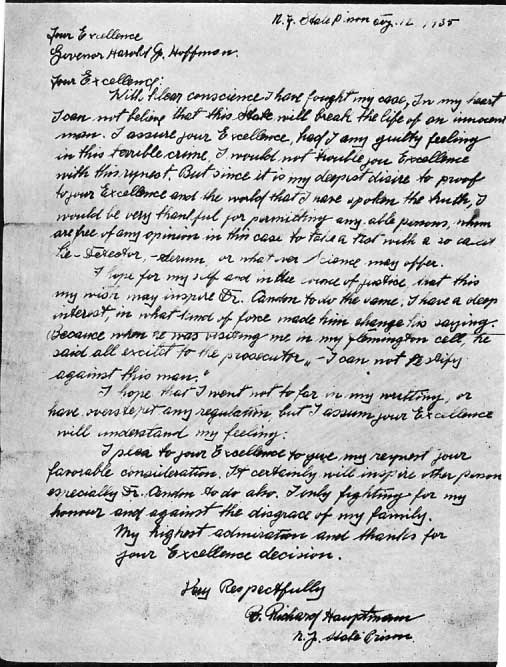 N.J. State Prison 12, 1935
Your Excellence
Govenor Harold G. Hoffman.
Your Excellence:
With clear conscience I have fought my case, In my heart
I can not believe that this State will break the life of an innocent
man. I assure your Excellence, had I any guilty feeling
in this terrible crime, I would not trouble you Excellence
with this reqest. But since it is my deepist disire to proof
to your Excellence and the world that I have spoken the truth, I
would be very thankful for permitting any able persons, whom
are free of any opinion in this case to take a test with a so called
lie-Tector, -serum, or what ever science may offer.
I hope for my self and in the of justice that this
my wish may inspire Dr. Condon to do the same. I have a deep
interest, in what kind of force made him change his saying.
Because when he was visiting me in my Flemington cell, he
said all excitet to the prosecutor "-I can not testify
against this man."
I hope that I went not to far in my writting, or
have any regulation, but I assum your Excellence
will understand my feeling.
I plea to your Excellence to give my reqest your
favorable consideration. It certainly will inspire other person
especially Dr. Condon to do also. I only fighting for my
honour and against the disgrace of my family.
My highest admiration and thanks for
your Excellence decision.
Very Respectfully
B. Richard Hauptmann
N.J. State Prison.